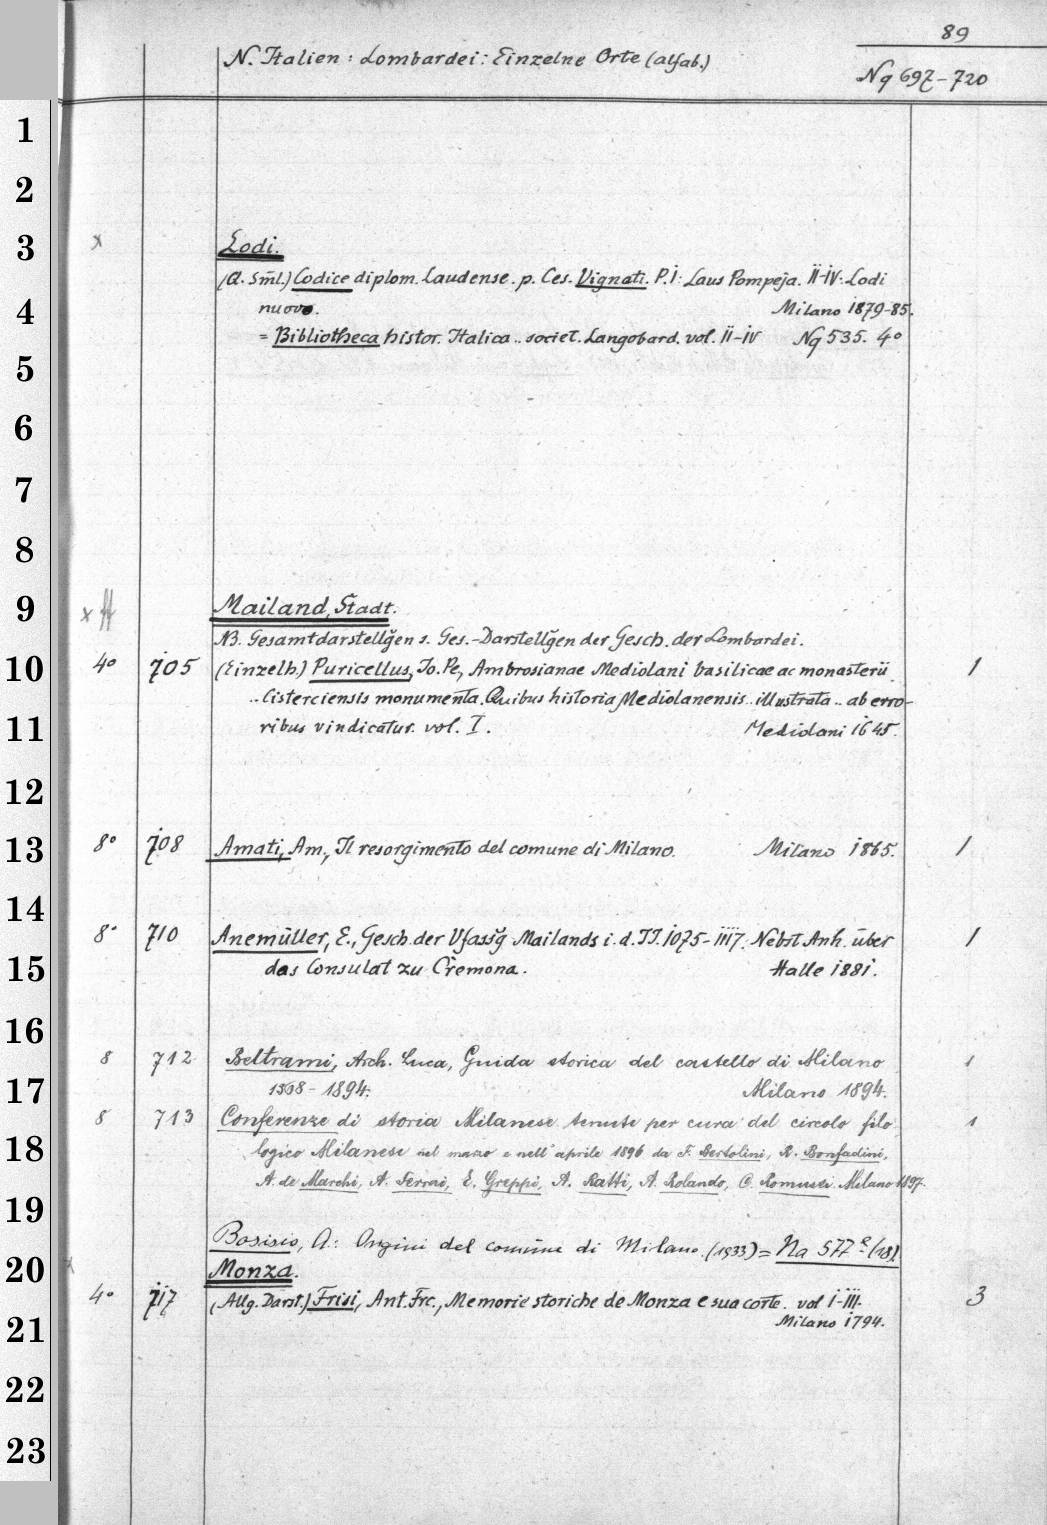 89
N. Italien : Lombardei : Einzelne Orte (alfab.)
Nq 697-720
1
2
3 x Lodi.
(Q. Sm̄l.) Codice diplom. Laudense. p. Ces. Vignati. P. I: Laus Pompeja. II-IV: Lodi
4 nuovo. Milano 1879-85.
= Bibliotheca histor. Italica .. societ. Langobard. vol. II-IV Nq 535. 4°
5
6
7
8
9 x ff Mailand, Stadt.
NB. Gesamtdarstellg̃en s. Ges.-Darstellg̃en der Gesch. der Lombardei.
10 4° 705 (Einzelh.) Puricellus, Jo. Pe, Ambrosianae Mediolani basilicae ac monasterii 1
.. Cisterciensis monumenta. Quibus historia Mediolanensis .. illustrata .. ab erro-
11 ribus vindicatur. vol. I. Mediolani 1645.
12
13 8° 708 Amati, Am., Il resorgimento del comune di Milano. Milano 1865. 1
14
8° 710 Anemüller, E., Gesch. der Vfassg̃ Mailands i. d. JJ. 1075-1117. Nebst Anh. über 1
15 das Consulat zu Cremona. Halle 1881.
16
8 712 Beltrami, Arch. Luca, Guida storica del castello di Milano 1
17 1368-1894. Milano 1894.
8 713 Conferenze di storia Milanese tenute per cura del circolo filo 1
18 logico Milanese nel marzo e nell' aprile 1896 da F. Bertolini, R. Bonfadini,
A. de Marchi, A. Ferrai, E. Greppi, A. Ratti, A. Rolando, C. Romussi. Milano 1897.
19
Bosisio, A.: Origini del comune di Milano. (1933) = Na 577 (18)
20 x Monza.
4° 717 (Allg. Darst.) Frisi, Ant. Frc., Memorie storiche de Monza e sua corte. vol I-III. 3
21 Milano 1794.
22
23